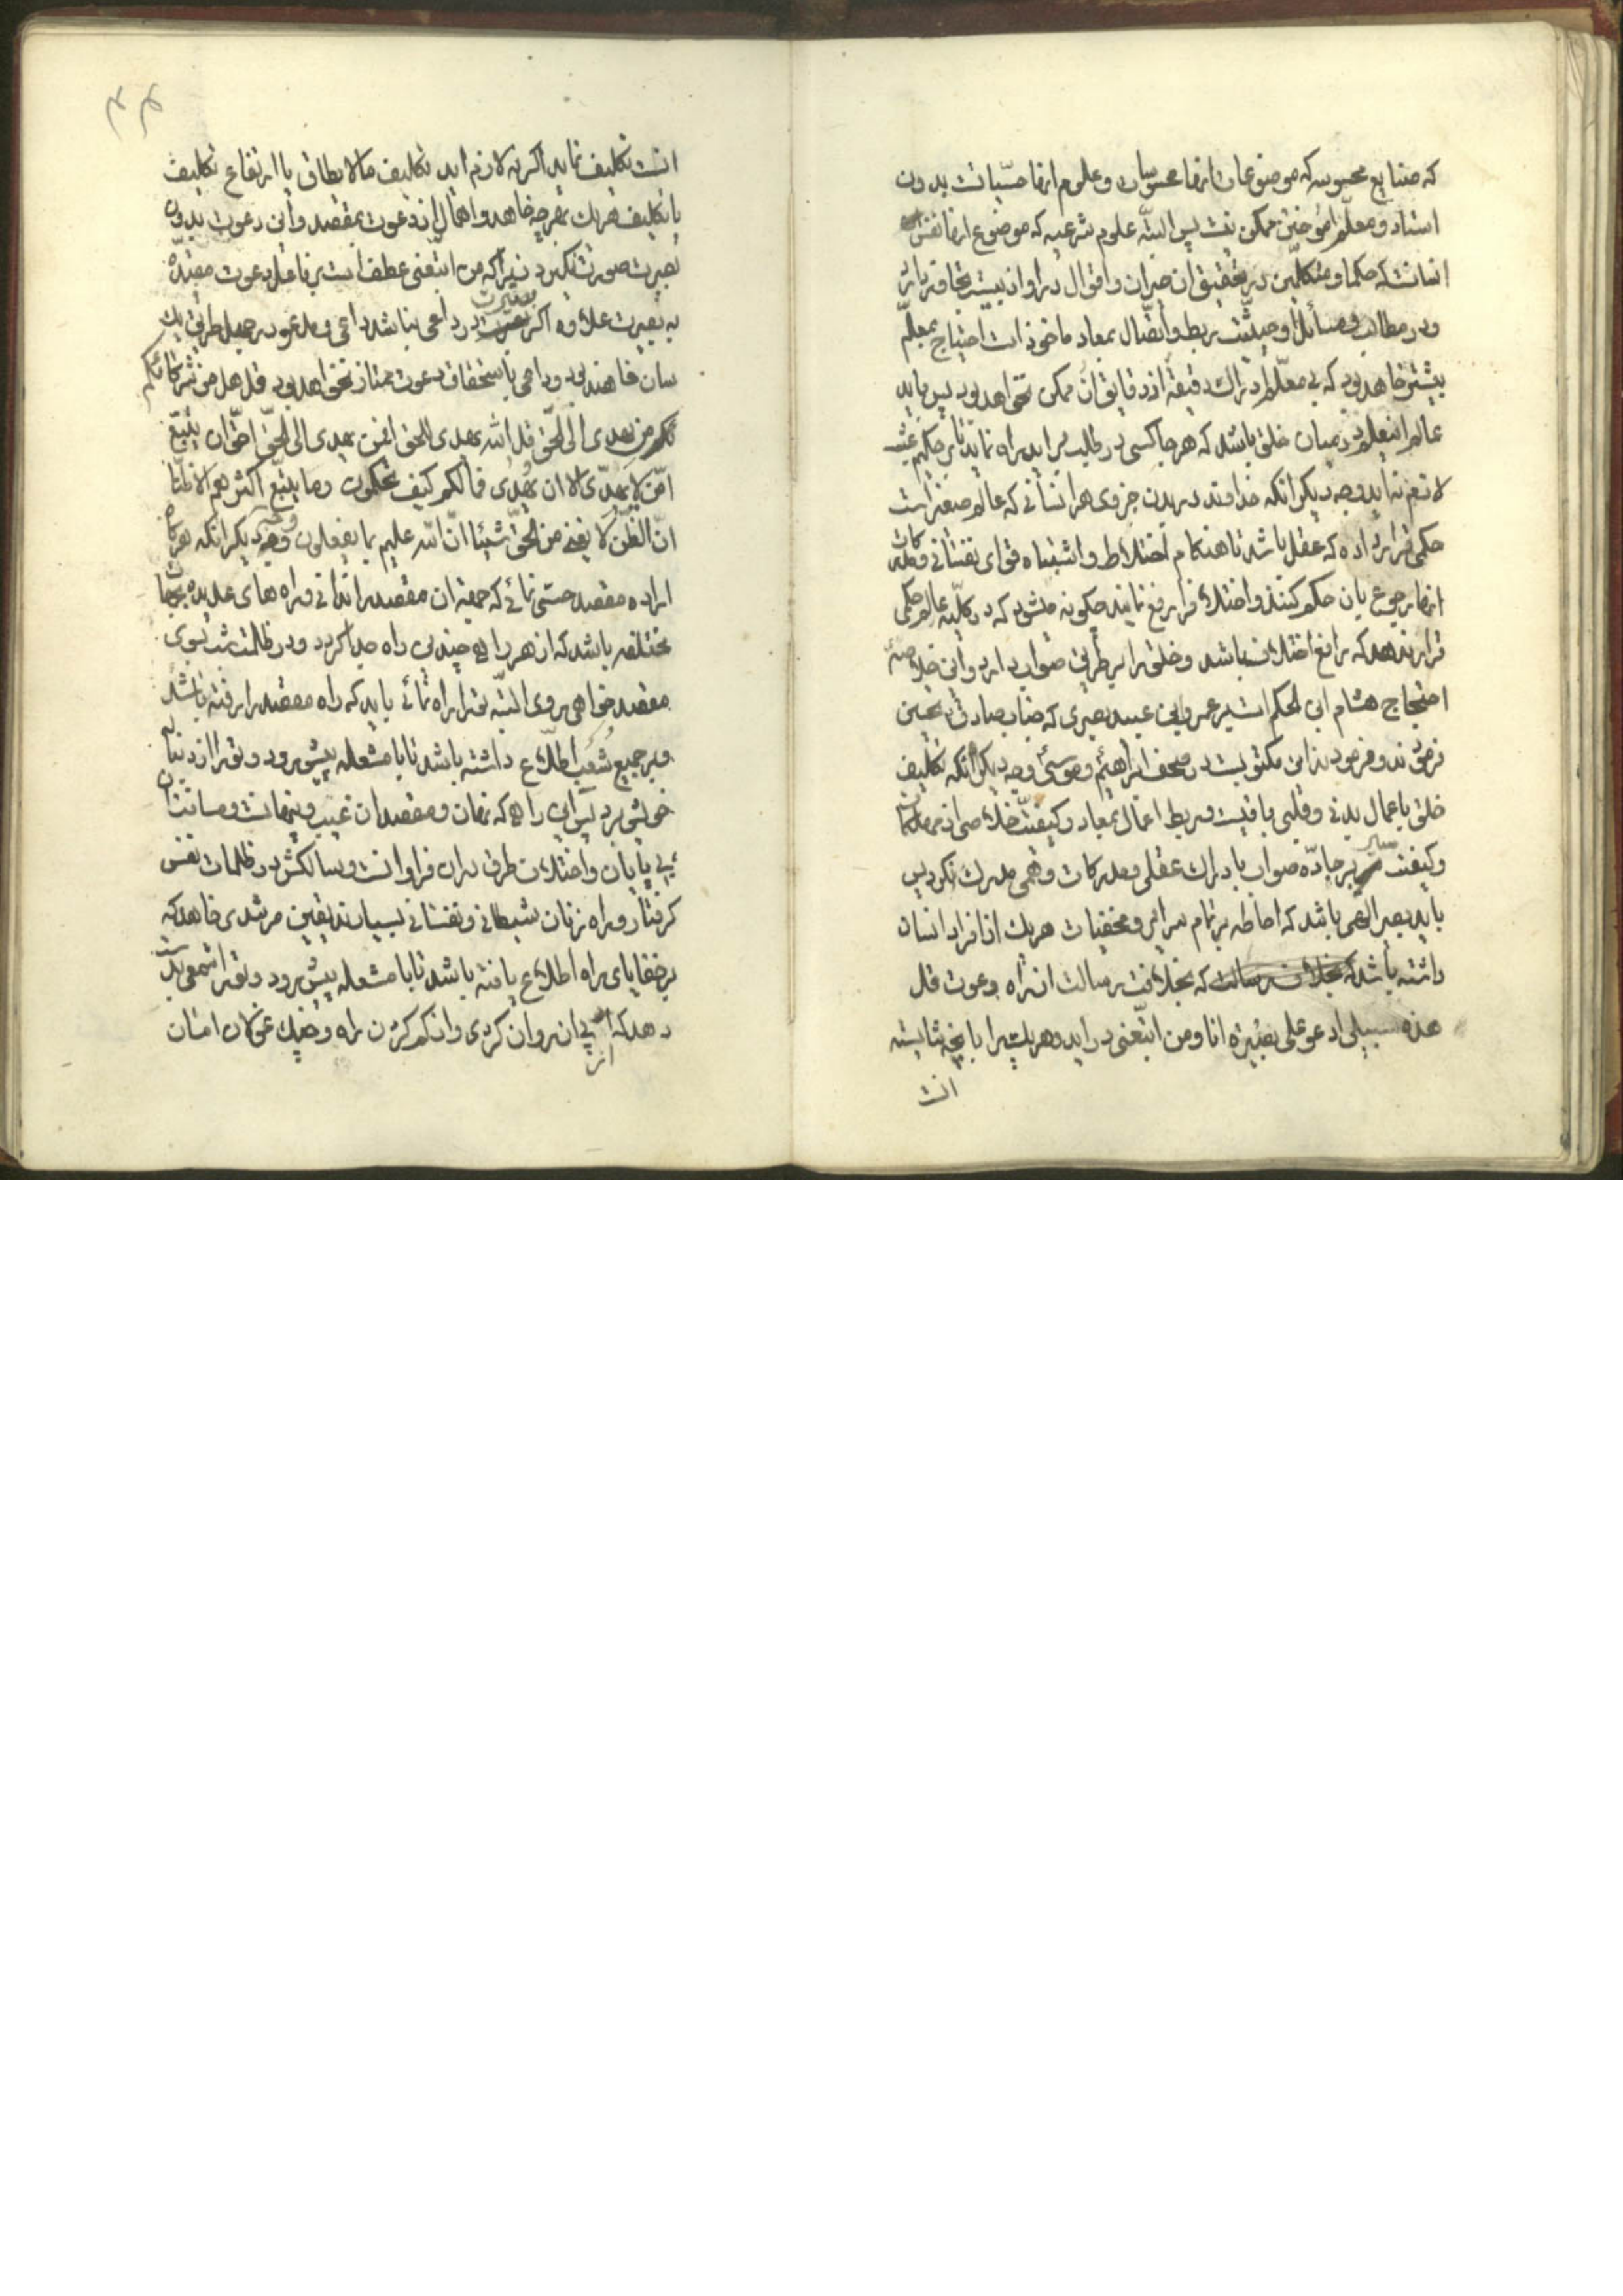 که صنایع محسوسه که موضوعات انها محسوسات و علوم انها حسّیاتست بدون
استاد و معلّم اموختن ممکن نیست پس البتّه علوم شرعیه که موضوع انها نفس
انسانست که حکما و متکلّمین در تحقیق ان حیران و اقوال در او از بیست متجاوز
و در مطالب و مسائل او حیثیّت ربط و اتّصال بمعاد ماخوذ است احتیاج بمعلّم
بیشتر خواهد بود که بی معلّم ادراک دقیقهٔ از دقایق ان ممکن نخواهد بود پس باید
عالم این علوم در میان خلق باشد که هر جا کسی در طلب براید راه نماید تا بر حکیم عبث
لازم نیاید وجه دیگر انکه خداوند در بدن جزوی هر انسانی که عالم صغیر است
حکمی قرار داده که عقل باشد تا هنگام اختلاط و اشتباه قوای نفسانی و مدرکات
انها رجوع بان حکم کنند و اختلاف را رفع نمایند چگونه میشود که در کلّیه عالم حکمی
قرار ندهد که رافع اختلاف باشد و خلق را بر طریق صواب دارد و این خلاصهٔ
احتجاج هشام ابن الحکم است بر عمرو ابن عبید بصری که جناب صادق تحسین
فرمودند و فرمودند این مکتوبست در صحف ابراهیم و موسی وجه دیگر انکه تکلیف
خلق باعمال بدنی و قلبی باقیست و ربط اعمال بمعاد و کیفیّت خلاصی از مهلکات
و کیفیت سیر بر جادّه صواب بادراک عقلی و مدرکات وهمی مدرک نگردد پس
باید بصیر الهی باشد که احاطه بر تمام سرایر و مخفیات هر یک از افراد انسان
داشته باشد که بخلافت رسالت از راه دعوت قل
هذه سبیلی ادعو علی بصیرة انا و من اتّبعنی در اید و هر یک را بانچه شایسته
انست
انست تکلیف نماید اگر نه لازم اید تکلیف مالایطاق یا ارتفاع تکلیف
یا تکلیف هر یک بهر چه خواهد و اهمال از دعوت بمقصد و این دعوت بدون
بصیرت صورت نگیرد زیرا که من اتّبعنی عطف است بر فاعل دعوت مقیّده
به بصیرت علاوه اگر بصیرت در داعی نباشد داعی و مدعو در جهل طریق یک
سان خواهند بود و داعی باستحقاق دعوت ممتاز نخواهد بود قل هل من شرکائکم
من یهدی الی الحقّ قل الله یهدی للحق افمن یهدی الی الحقّ احقّ ان یتّبع
امّن لا یهدّی الا ان یُهدی فما لکم کیف تحکمون وما یتّبع اکثرهم الا ظنّا
انّ الظنّ لا یغنی من الحقّ شیئا انّ الله علیم بما یفعلون وجه دیگر انکه هرگاه
اراده مقصد حسّی نمائی که جهة ان مقصد را ندانی و راه های عدیده بجهات
مختلفه باشد که از هر راهی چندین راه جدا گردد و در ظلمت شب بسوی
مقصد خواهی روی البتّه تو را راه نمائی باید که راه مقصد را رفته باشد
و بر جمیع شُعَب اطّلاع داشته باشد تا با مشعله پیش رود و تو را از دنبال
خویش برد پس این راهی که نهان و مقصد ان غیب و پنهانست و مسافتش
بی پایان و اختلاف طرق در ان فراوانست و سالکش در ظلمات نفس
گرفتار و راه زنان شیطانی و نفسانی بسیارند یقین مرشدی خواهد که
بر خفایای راه اطلاع یافته باشد تا با مشعله پیش رود و تو را شمعی بدست
دهد که از پی ان روان گردی و از گم کردن راه و فریب غولان امان
از